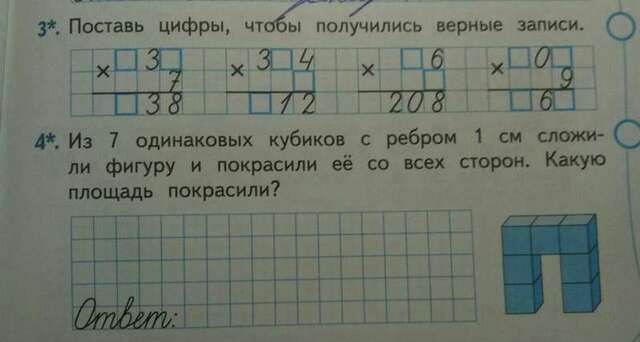 3*. Поставь цифры, чтобы получились верные записи.
× □3□ × 3□4 × □6 × □0□
7 □ □ 9
□38 □12 208 □6□
4*. Из 7 одинаковых кубиков с ребром 1 см сложи-
ли фигуру и покрасили её со всех сторон. Какую
площадь покрасили?
Ответ: